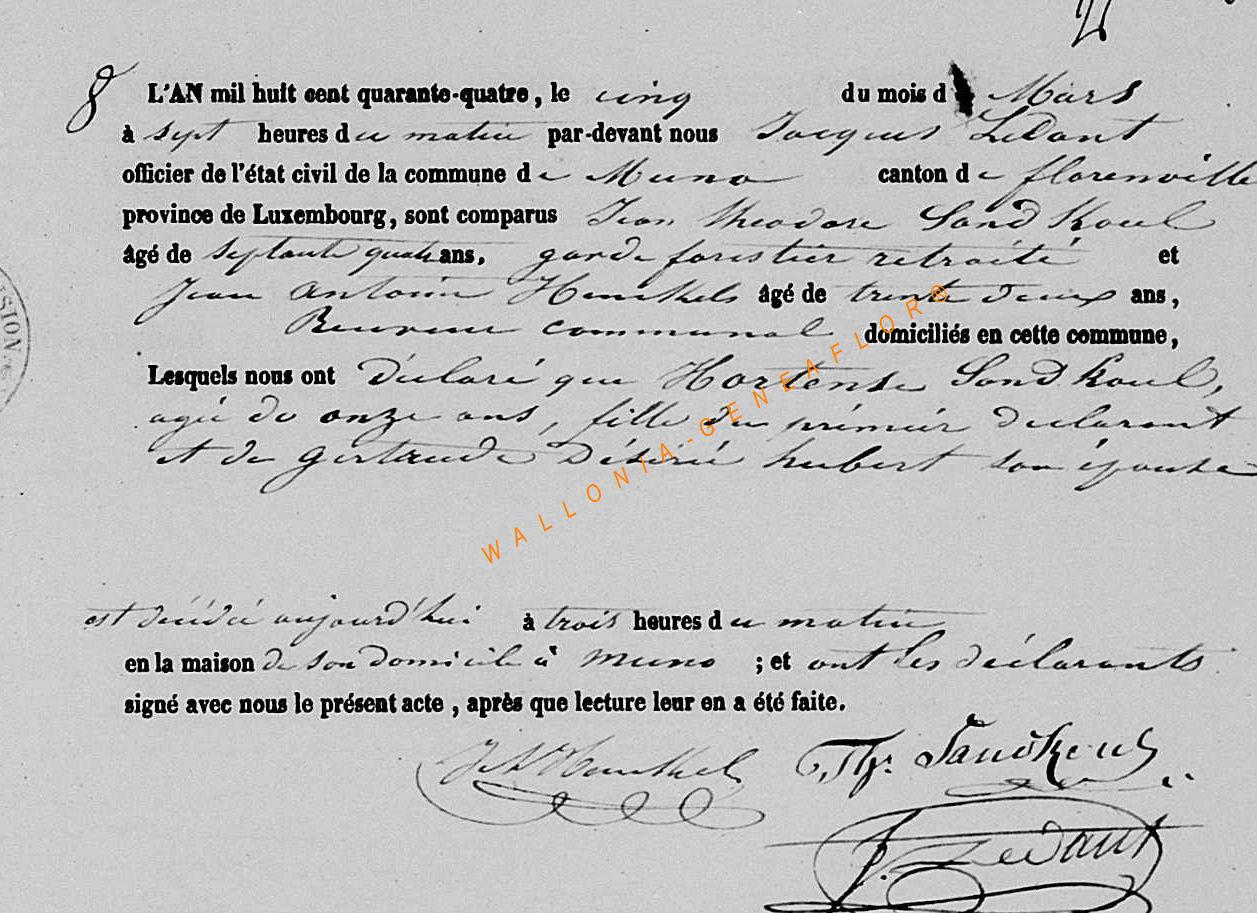 8
L'AN mil huit cent quarante-quatre, le cinq du mois d Mars
à sept heures du matin par-devant nous Jacques LeDant
officier de l'état civil de la commune de Muno canton de florenville
province de Luxembourg, sont comparus Jean theodore Sandkoul
âgé de septante quatre ans, garde forestier retraité et
Jean Antoine Henckels âgé de trente deux ans,
Receveur communal domiciliés en cette commune,
Lesquels nous ont Déclaré que Hortense Sandkoul,
agée de onze ans, fille du prémiér declarant
et de gertrude Désirée hubert son épouse
est décédée aujourd'hui à trois heures du matin
en la maison de son domicile à muno ; et ont les déclarants
signé avec nous le présent acte, après que lecture leur en a été faite.
J. Ledant
WALLONIA-GENEAFLOR®